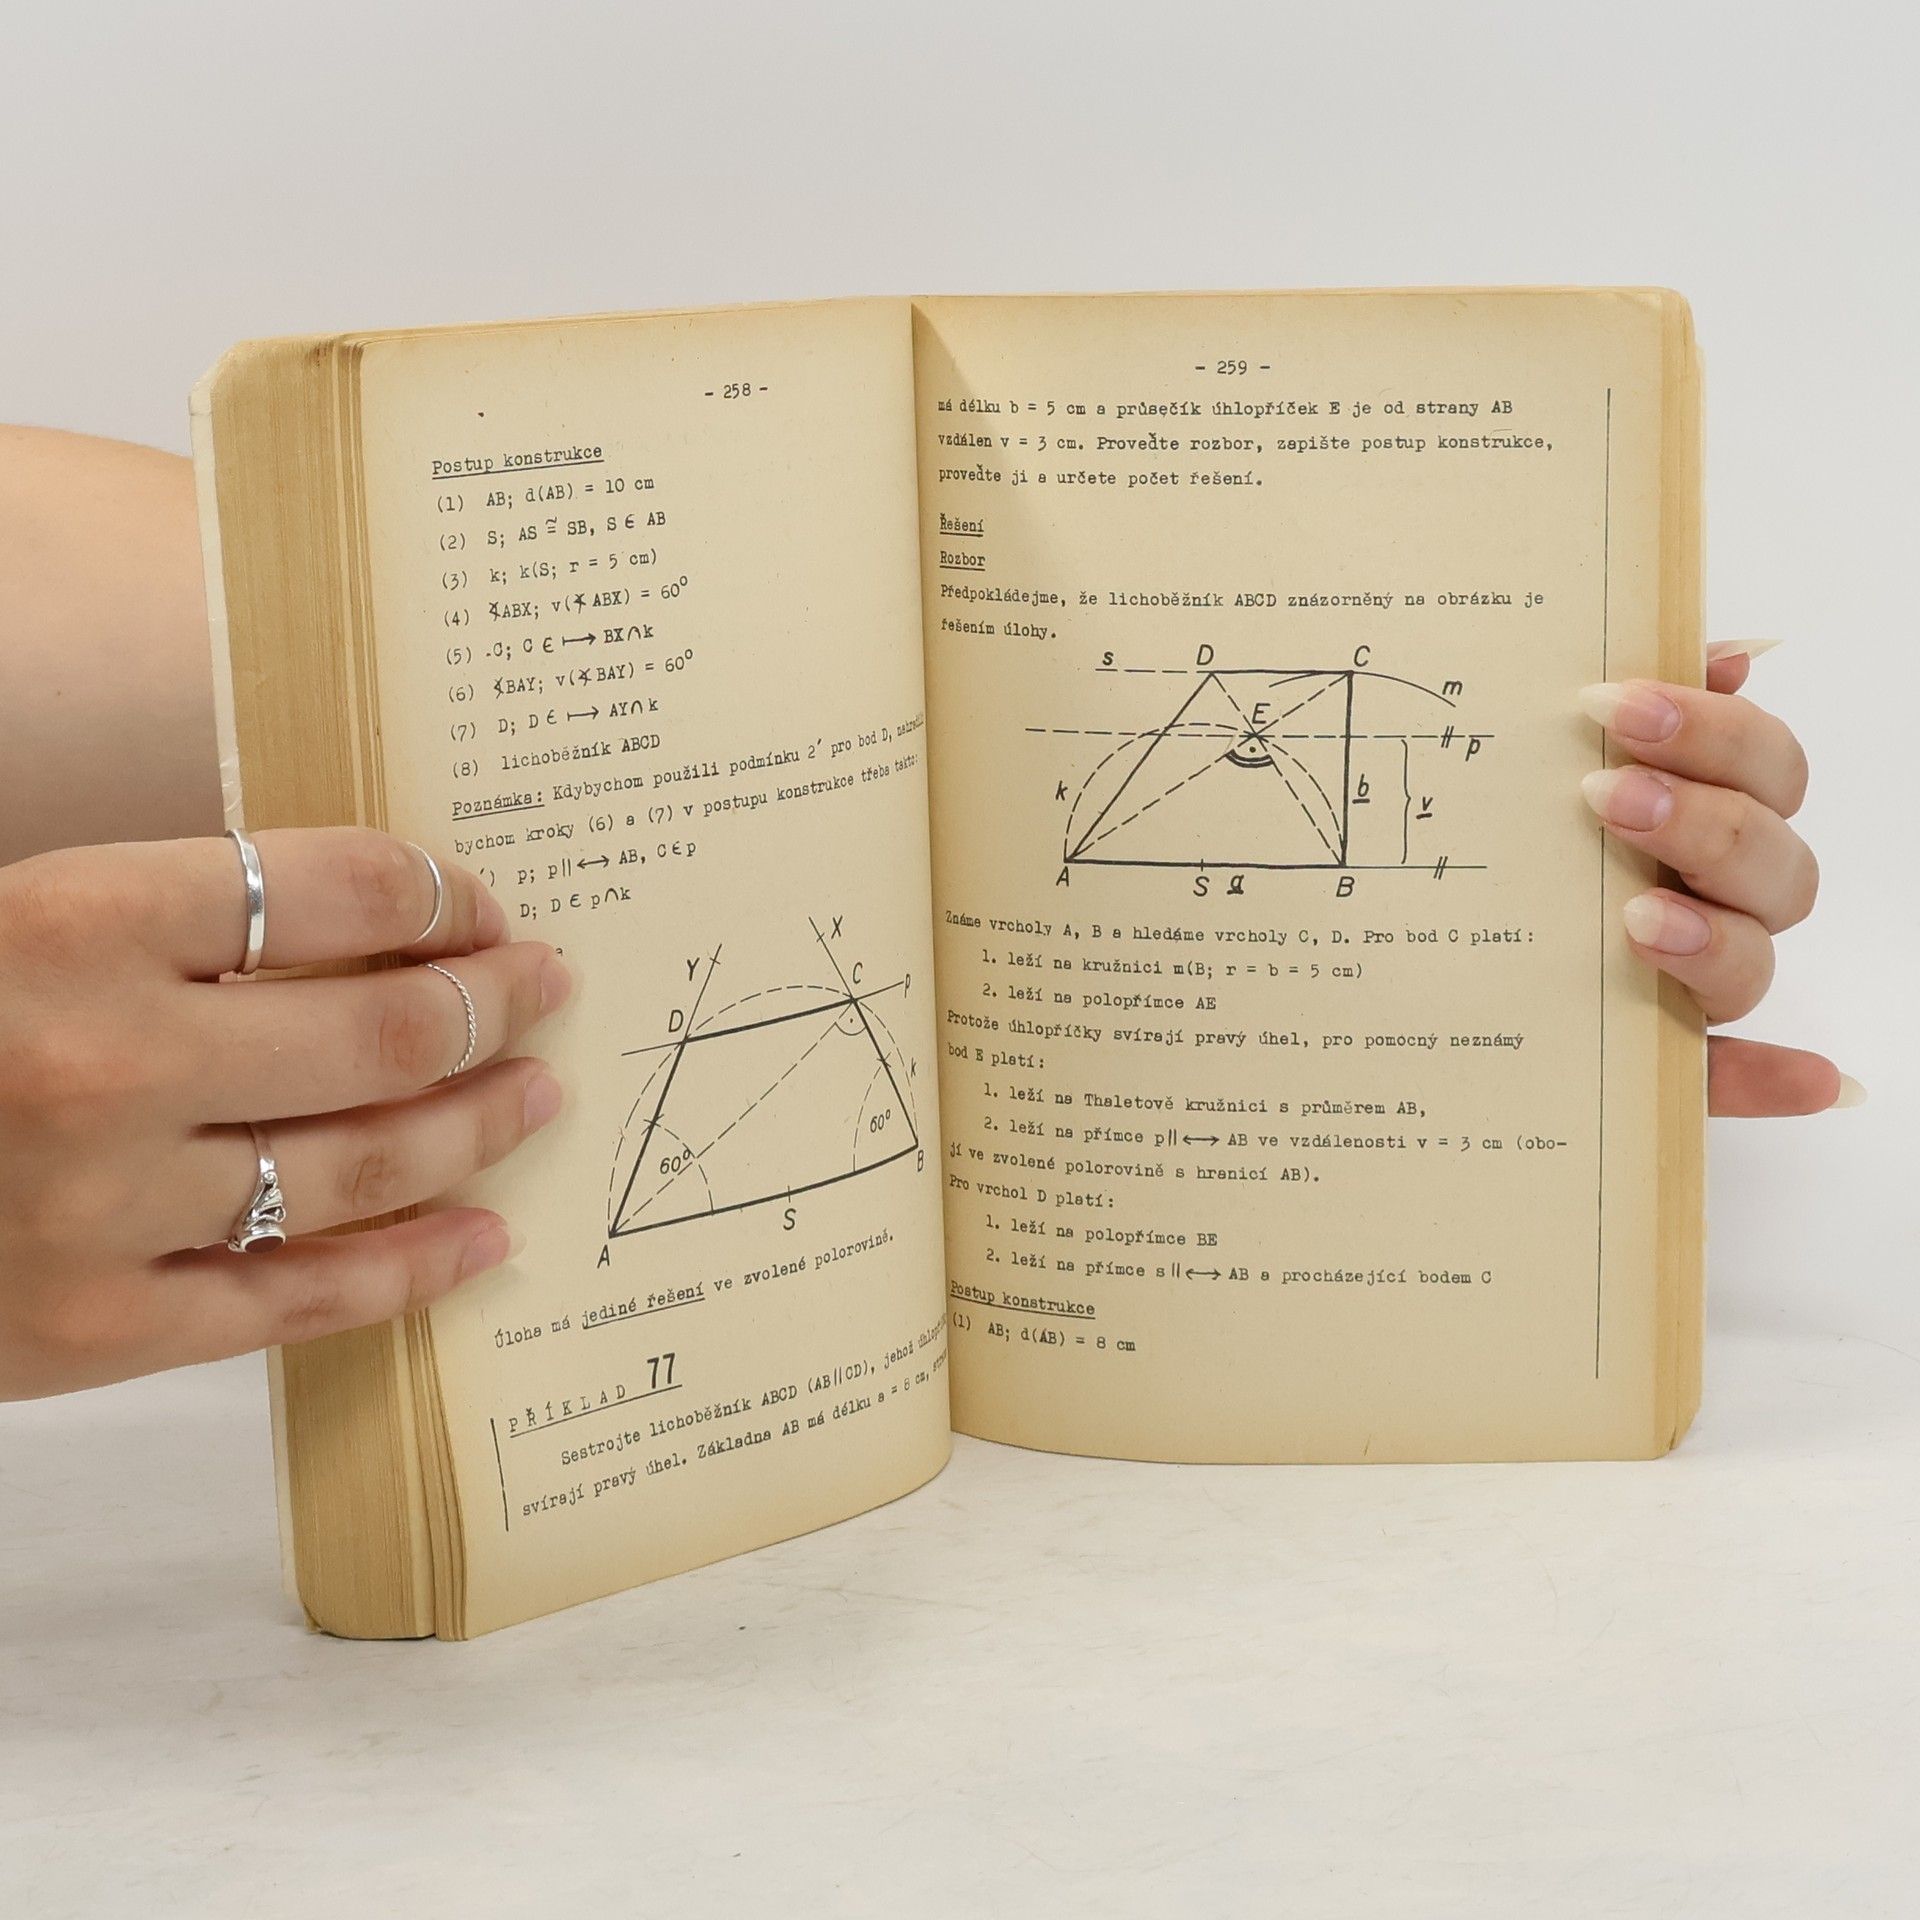 - 258 -
Postup konstrukce
(1) AB; d(AB) = 10 cm
(2) S; AS ≅ SB, S ∈ AB
(3) k; k(S; r = 5 cm)
(4) ∢ABX; v(∢ABX) = 60°
(5) C; C ∈ ↦ BX∩k
(6) ∢BAY; v(∢BAY) = 60°
(7) D; D ∈ ↦ AY∩k
(8) lichoběžník ABCD
Poznámka: Kdybychom použili podmínku 2´ pro bod D,
bychom kroky (6) a (7) v postupu konstrukce třeba takto:
´) p; p∥⟷ AB, C∈p
D; D ∈ p∩k
Y X
C p
D
k
60° 60°
B
S
A
Úloha má jediné řešení ve zvolené polorovině.
PŘÍKLAD 77
Sestrojte lichoběžník ABCD (AB∥CD), jehož
svírají pravý úhel. Základna AB má délku a = 8 cm,
- 259 -
má délku b = 5 cm a průsečík úhlopříček E je od strany AB
vzdálen v = 3 cm. Proveďte rozbor, zapište postup konstrukce,
proveďte ji a určete počet řešení.
Řešení
Rozbor
Předpokládejme, že lichoběžník ABCD znázorněný na obrázku je
řešením úlohy.
s D C
m
E
p
k b v
A S a B
Známe vrcholy A, B a hledáme vrcholy C, D. Pro bod C platí:
1. leží na kružnici m(B; r = b = 5 cm)
2. leží na polopřímce AE
Protože úhlopříčky svírají pravý úhel, pro pomocný neznámý
bod E platí:
1. leží na Thaletově kružnici s průměrem AB,
2. leží na přímce p∥⟷ AB ve vzdálenosti v = 3 cm (obo-
jí ve zvolené polorovině s hranicí AB).
Pro vrchol D platí:
1. leží na polopřímce BE
2. leží na přímce s∥⟷ AB a procházející bodem C
Postup konstrukce
(1) AB; d(AB) = 8 cm